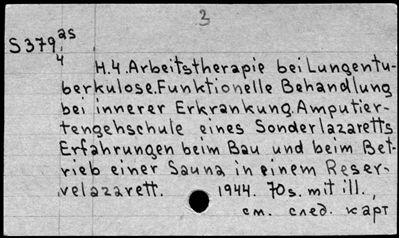 3
S379 as
4
H.4. Arbeitstherapie bei Lungentu-
berkulose. Funktionelle Behandlung
bei innerer Erkrankung. Amputier-
tengehschule eines Sonderlazaretts
Erfahrungen beim Bau und beim Bet-
rieb einer Sauna in einem Reser-
velazarett. 1944. 70s. mit ill.,
см. след. карт